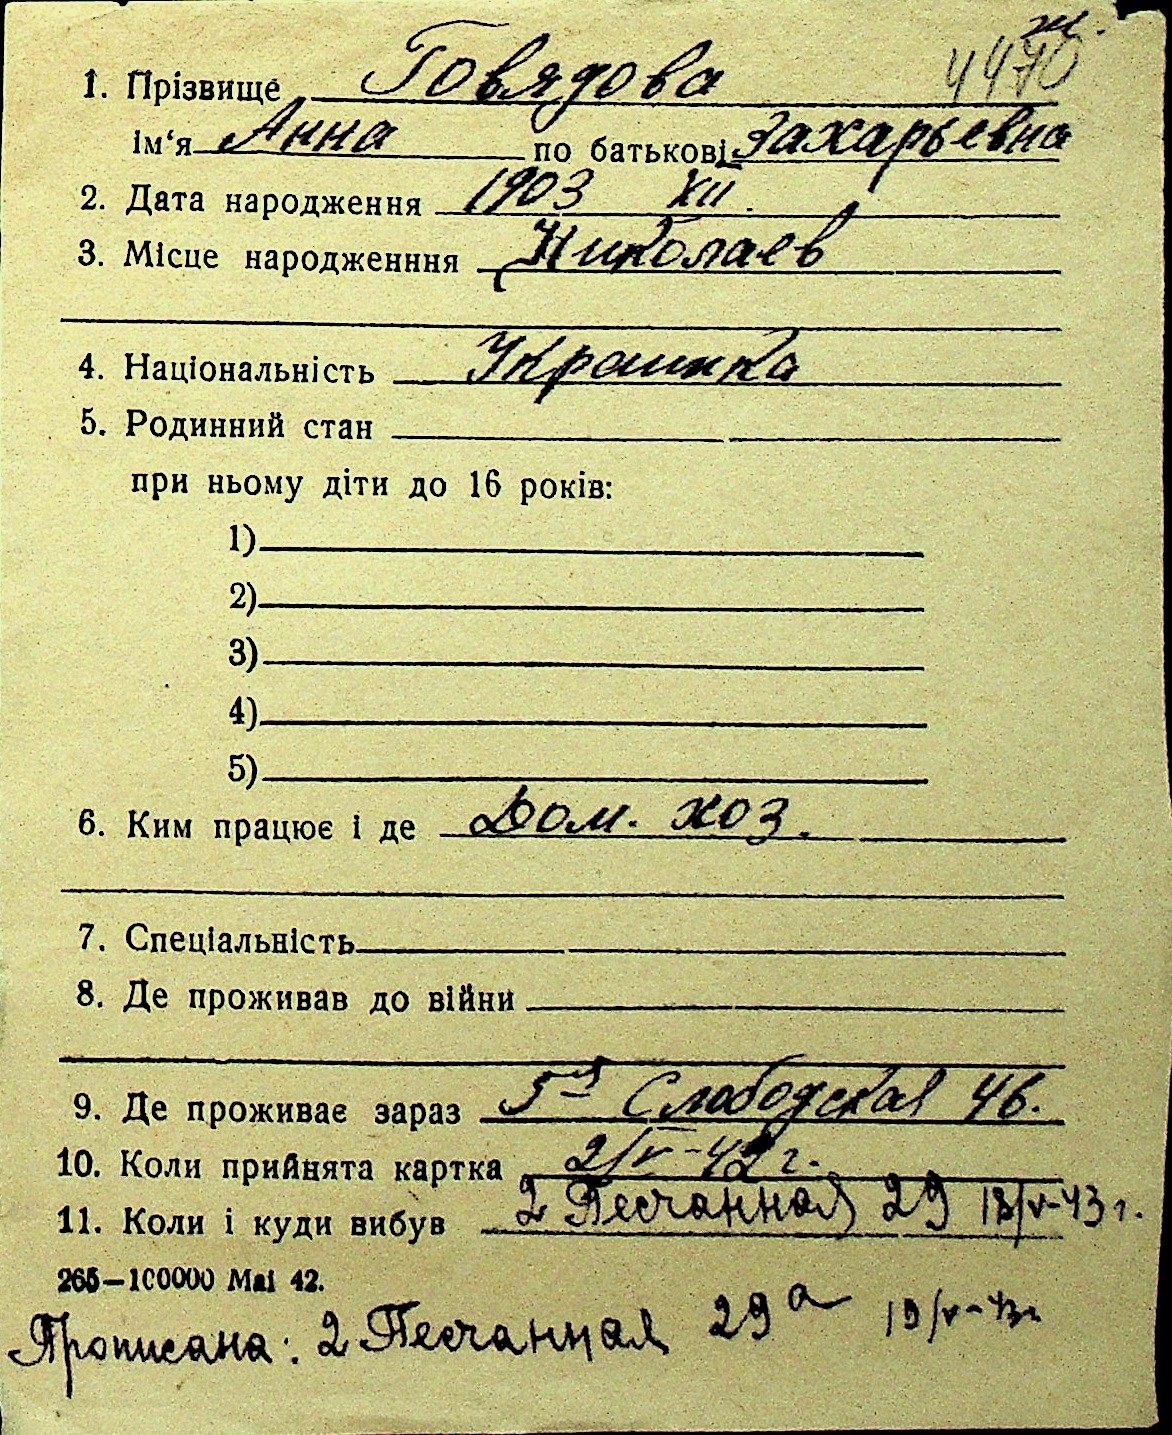 ж.
4470
1. Прізвище Говядова
ім‘я Анна по батькові Захарьевна
2. Дата народження 1903 XII.
3. Місце народженння Николаев
4. Національність Украинка
5. Родинний стан
при ньому діти до 16 років:
1)
2)
3)
4)
5)
6. Ким працює і де Дом. хоз.
7. Спеціальність
8. Де проживав до війни
9. Де проживає зараз 5я Слободская 46.
10. Коли прийнята картка 2/V-42 г.
11. Коли і куди вибув 2 Песчанная 29 13/V-43 г.
265—100000 Маі 42.
Прописана: 2 Песчанная 29а 19/V-43г